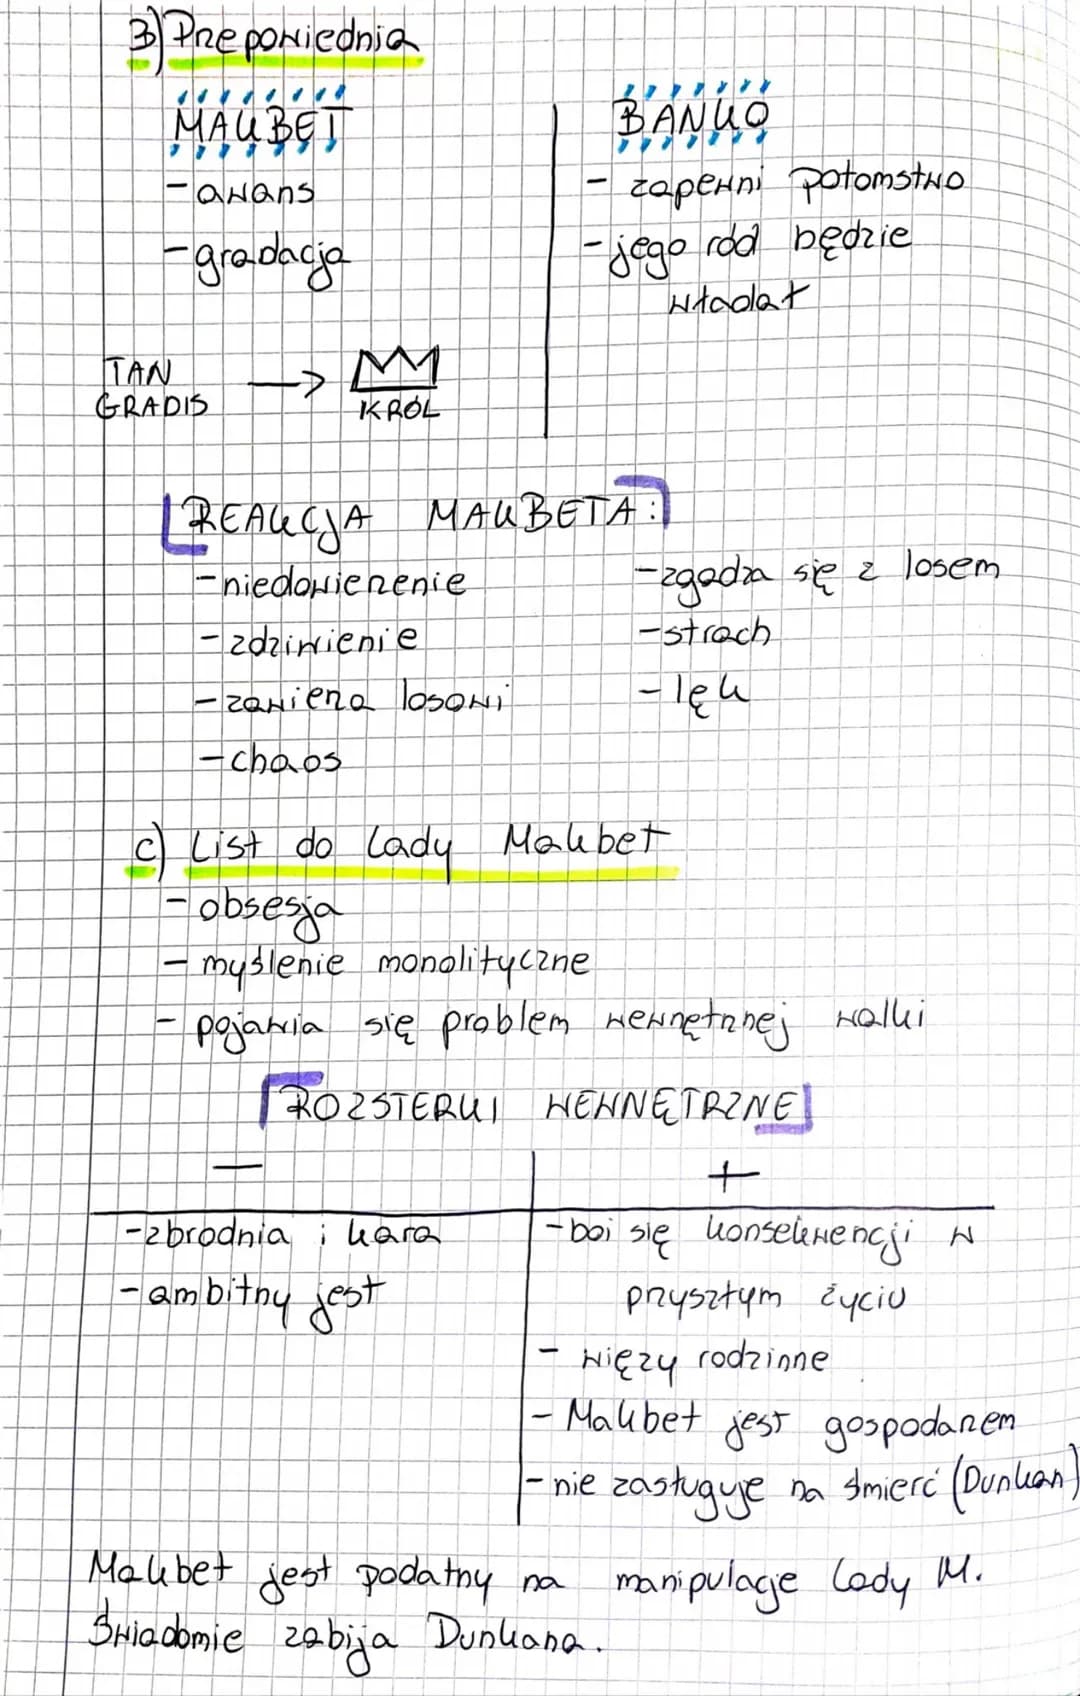 B) Przepowiednia
MAKBET
- awans
- gradacja
TAN GRADIS → KRÓL
BANKO
- zapewni potomstwo
- jego ród będzie
władał
REAKCJA MAKBETA:
- niedowierzenie
- zdziwienie
- zawierza losowi
- chaos
- zgadza się z losem
- strach
- lęk
c) List do Lady Makbet
- obsesja
- myślenie monolityczne
- pojawia się problem wewnętrznej walki
ROZSTERKI WEWNĘTRZNE
−
- zbrodnia i kara
- ambitny jest
+
- boi się konsekwencji w
przyszłym życiu
- więzy rodzinne
- Makbet jest gospodarzem
- nie zasługuje na śmierć (Dunkan)
Makbet jest podatny na manipulacje Lady M.
Świadomie zabija Dunkana.